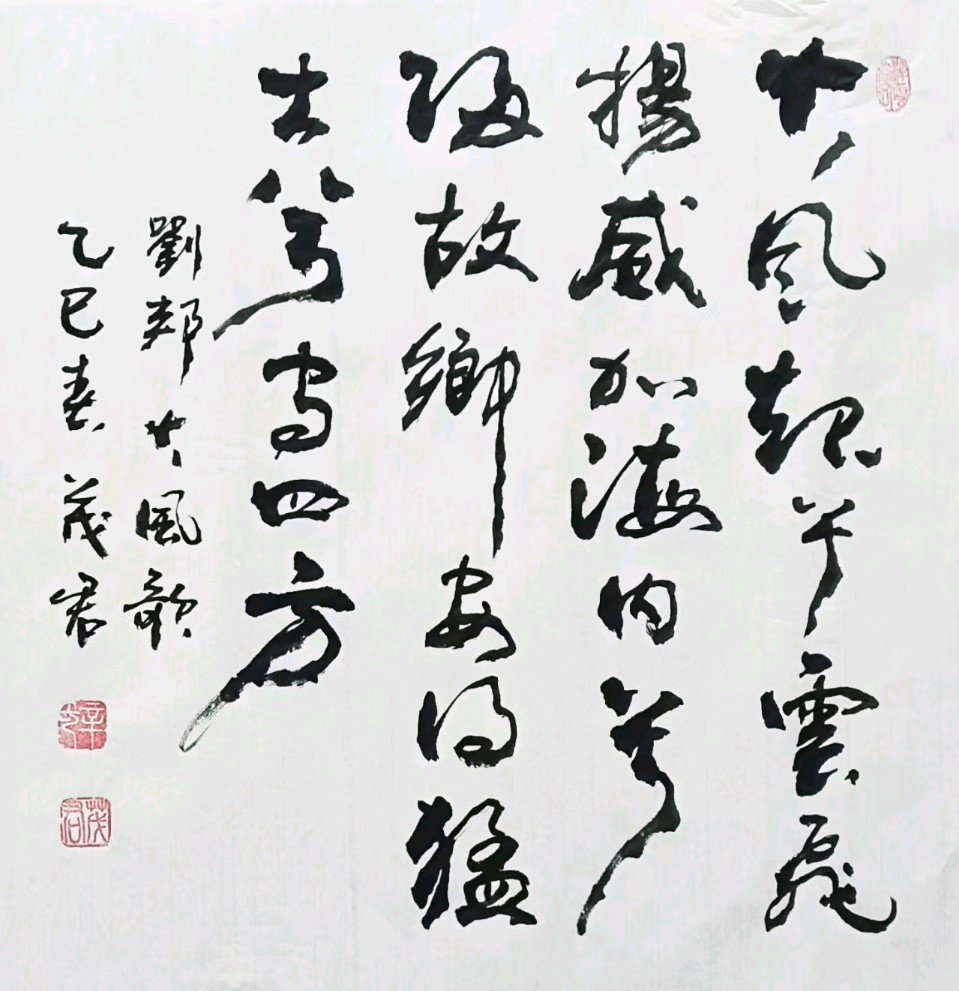 大風起兮雲飛
揚威加海内兮
歸故鄉安得猛
士兮守四方
劉邦大風歌
乙巳春茂君
茂君